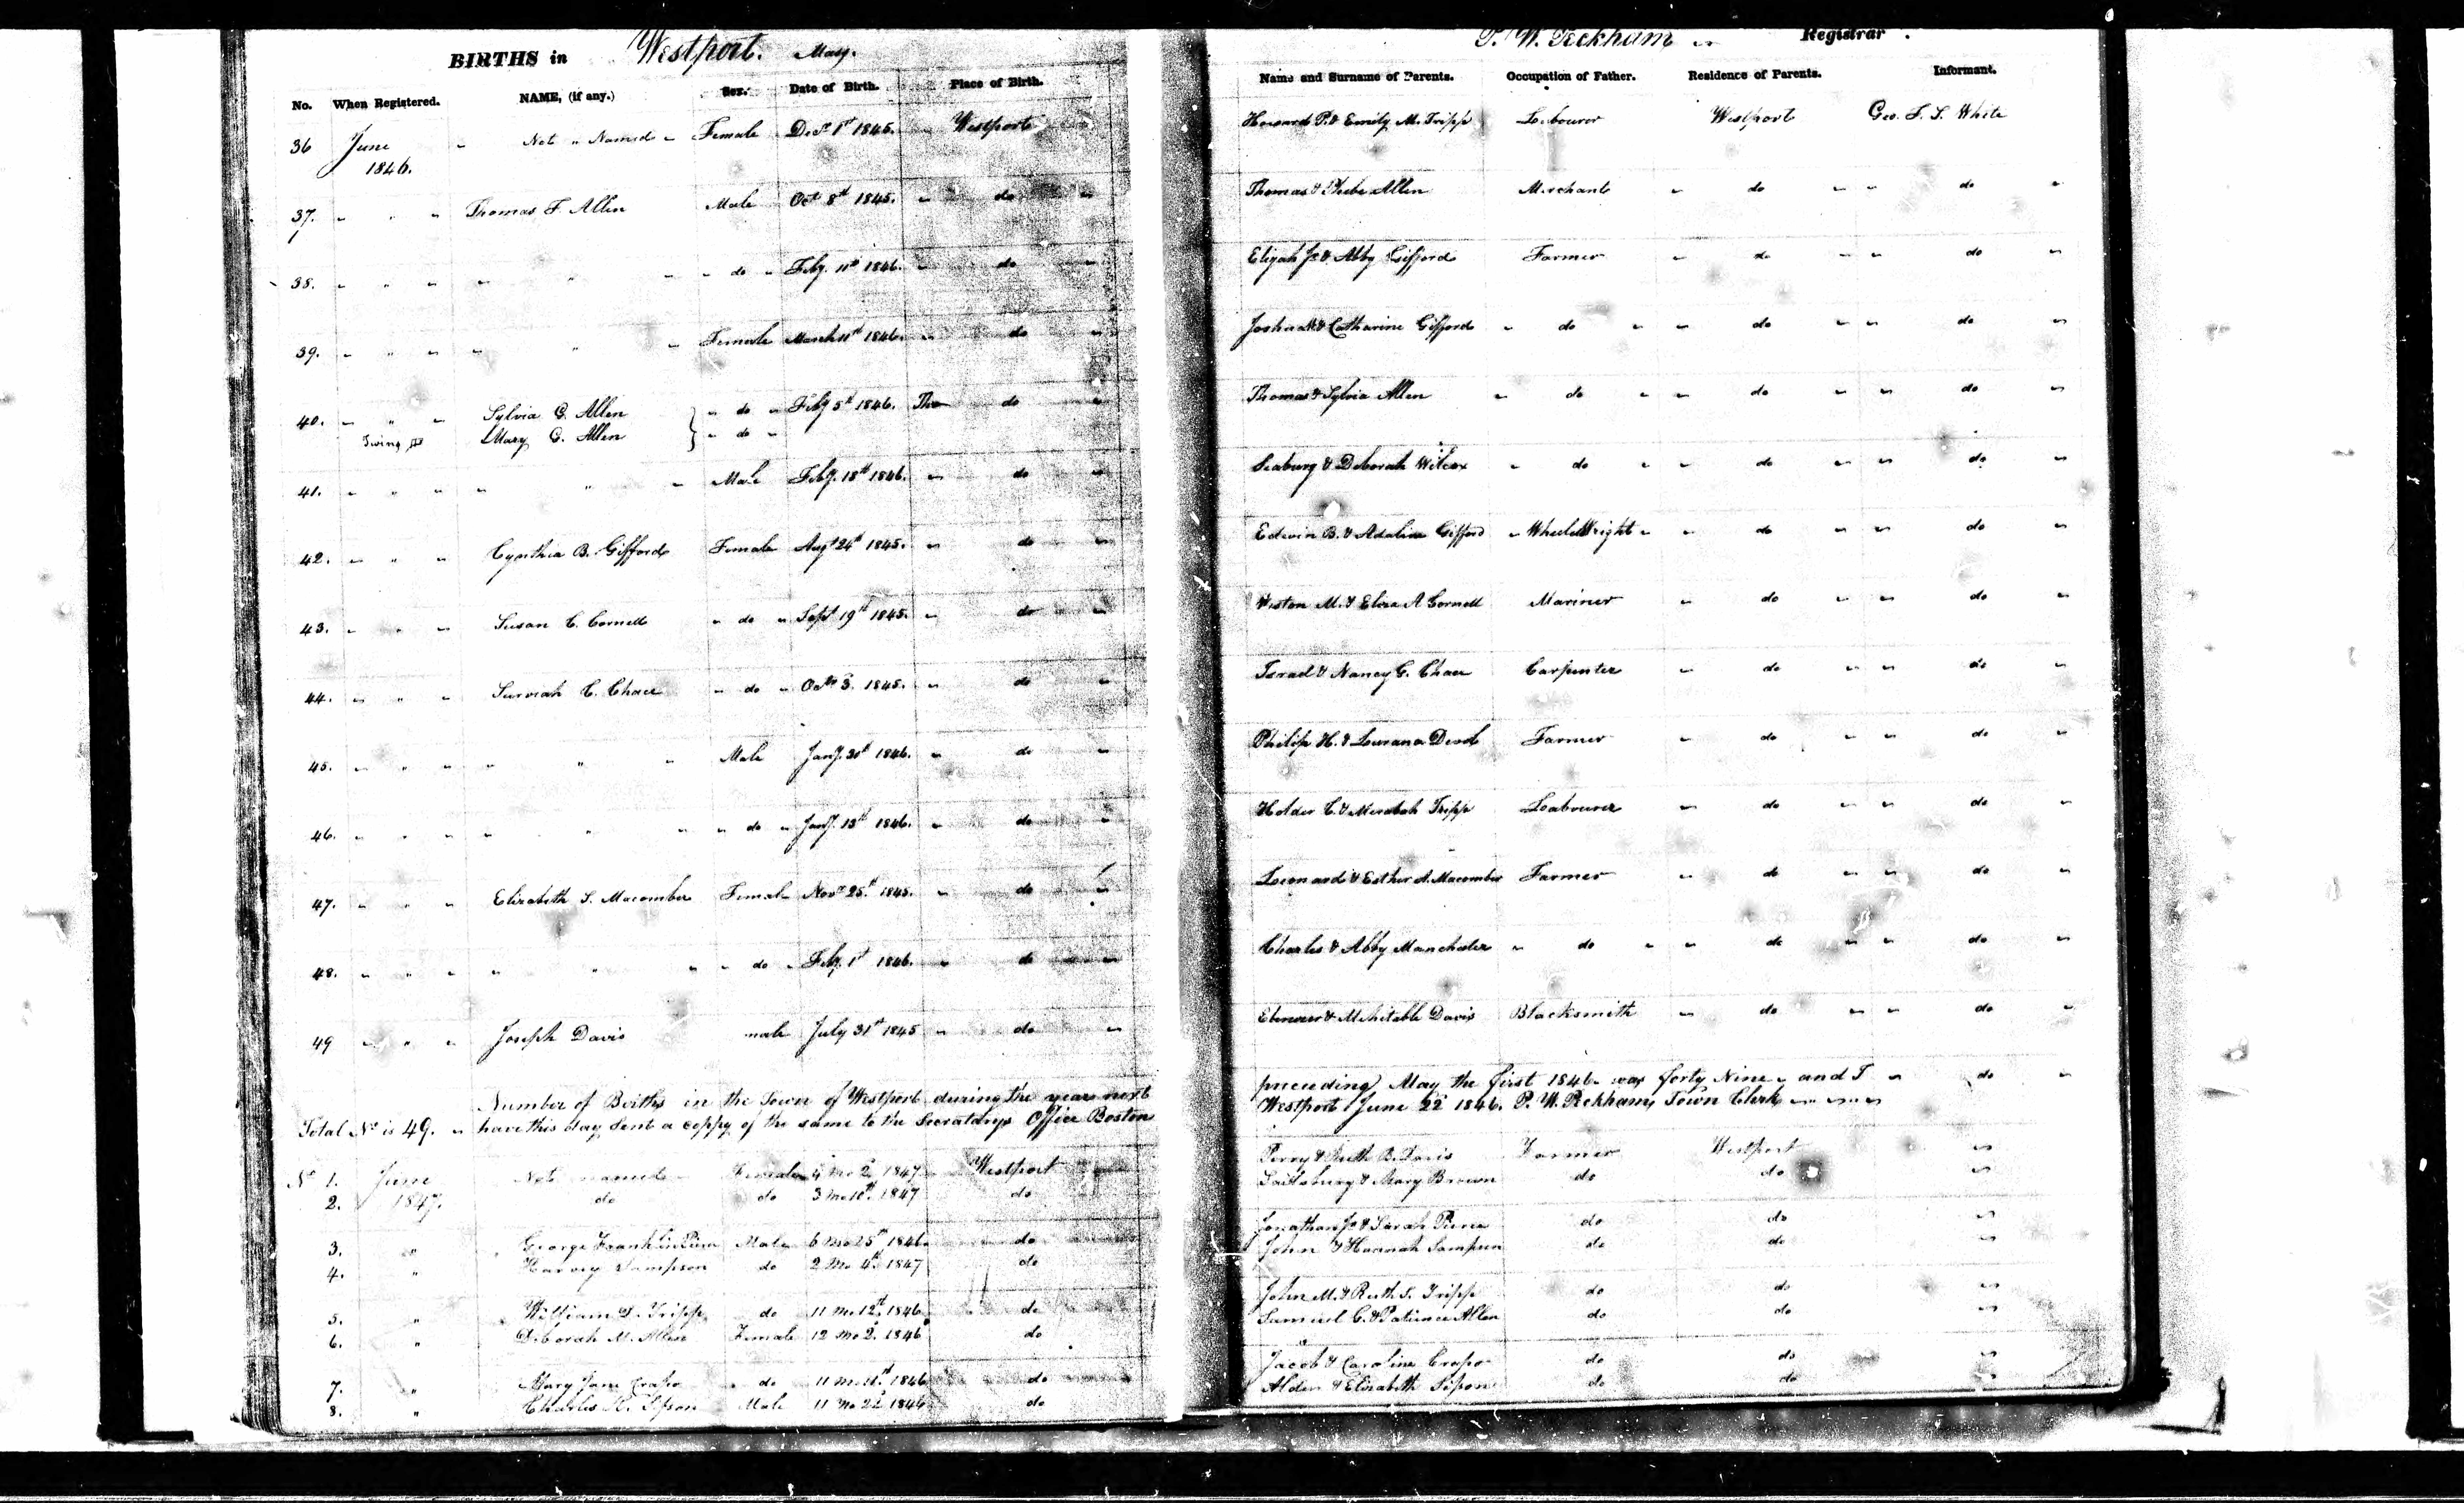 BIRTHS in Westport. Mass.
P. W. Peckham Registrar.
No. When Registered. NAME, (if any.) Sex. Date of Birth. Place of Birth. Name and Surname of Parents. Occupation of Father. Residence of Parents. Informant.
36 June 1846. " Not " Named " Female Decr 1st 1845. Westport Howard P. & Emily M. Tripp Labourer Westport Geo. F. S. White
37. " " " Thomas F. Allen Male Oct 8th 1845. " do " Thomas & Phebe Allen Merchant " do " " do "
38. " " " " " " " do " Feby. 11th 1846. " do " Elijah Jr. & Abby Gifford Farmer " do " " do "
39. " " " " " " Female March 11th 1846. " do " Joshua & Catharine Gifford " do " " do " " do "
40. " " " Sylvia G. Allen } " do " Feby 5th 1846. do " Thomas & Sylvia Allen " do " " do " " do "
Twins Mary G. Allen } " do "
41. " " " " " " Male Feby. 18th 1846. " do " Seabury & Deborah Wilcox " do " " do " " do "
42. " " " Cynthia B. Gifford Female Augt 24th 1845. " do " Edwin B. & Adaline Gifford " Wheel Wright " " do " " do "
43. " " " Susan C. Cornell " do " Sept 19th 1845. " do " Weston M. & Eliza A Cornell Mariner " do " " do "
44. " " " C. Chace " do " Octr 3. 1845. " do " Israel & Nancy G. Chace Carpenter " do " " do "
45. " " " " " " Male Jany. 1846. " do " Philip H. & Lurana Farmer " do " " do "
46. " " " " " " " do " Jany. 13th 1846. " do " Holder C. & Meribah Tripp Labourer " do " " do "
47. " " " Elizabeth S. Macomber Female Novr 25th 1845. " do " Leonard & Esther A. Macomber Farmer " do " " do "
48. " " " " " " " do " Feby. 1st 1846. " do " Charles & Abby Manchester " do " " do " " do "
49 " " " Joseph Davis male July 31st 1845 " do " Ebenezer & Mehitable Davis Blacksmith " do " " do "
Number of Births in the Town of Westport during the year next preceeding May the first 1846 was forty Nine " and I " do "
Total No is 49. " have this day sent a coppy of the same to the Secratarys Office Boston Westport June 22 1846. P. W. Peckham, Town Clerk
No 1. June Not named Female 4 Mo 2d 1847 Westport Perry & Ruth B. Davis Farmer Westport "
2. 1847. do do 3 Mo 1847 do & Mary Brown do do "
3. " George Franklin Male 6 Mo 25th 1846 do Jonathan Jr & Sarah do do "
4. " Harvey Sampson do 2 Mo 4th 1847 do John & Hannah Sampson do do "
5. " William Tripp do 11 Mo 12th 1846 do John M. & Ruth S. Tripp do do "
6. " Deborah M. Allen Female 12 Mo 2d 1846 do Samuel C. & Patience Allen do do "
7. " Mary Jane Crapo do 11 Mo 1846 do Jacob & Caroline Crapo do do "
8. " Charles Male 11 Mo 22d 1846 do Alden & Elizabeth do do "